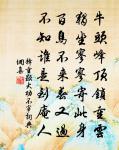 牛頭峰頂鎖重雲
獨坐寥寥寄此身
百鳥不來春又過
不知誰是到庵人